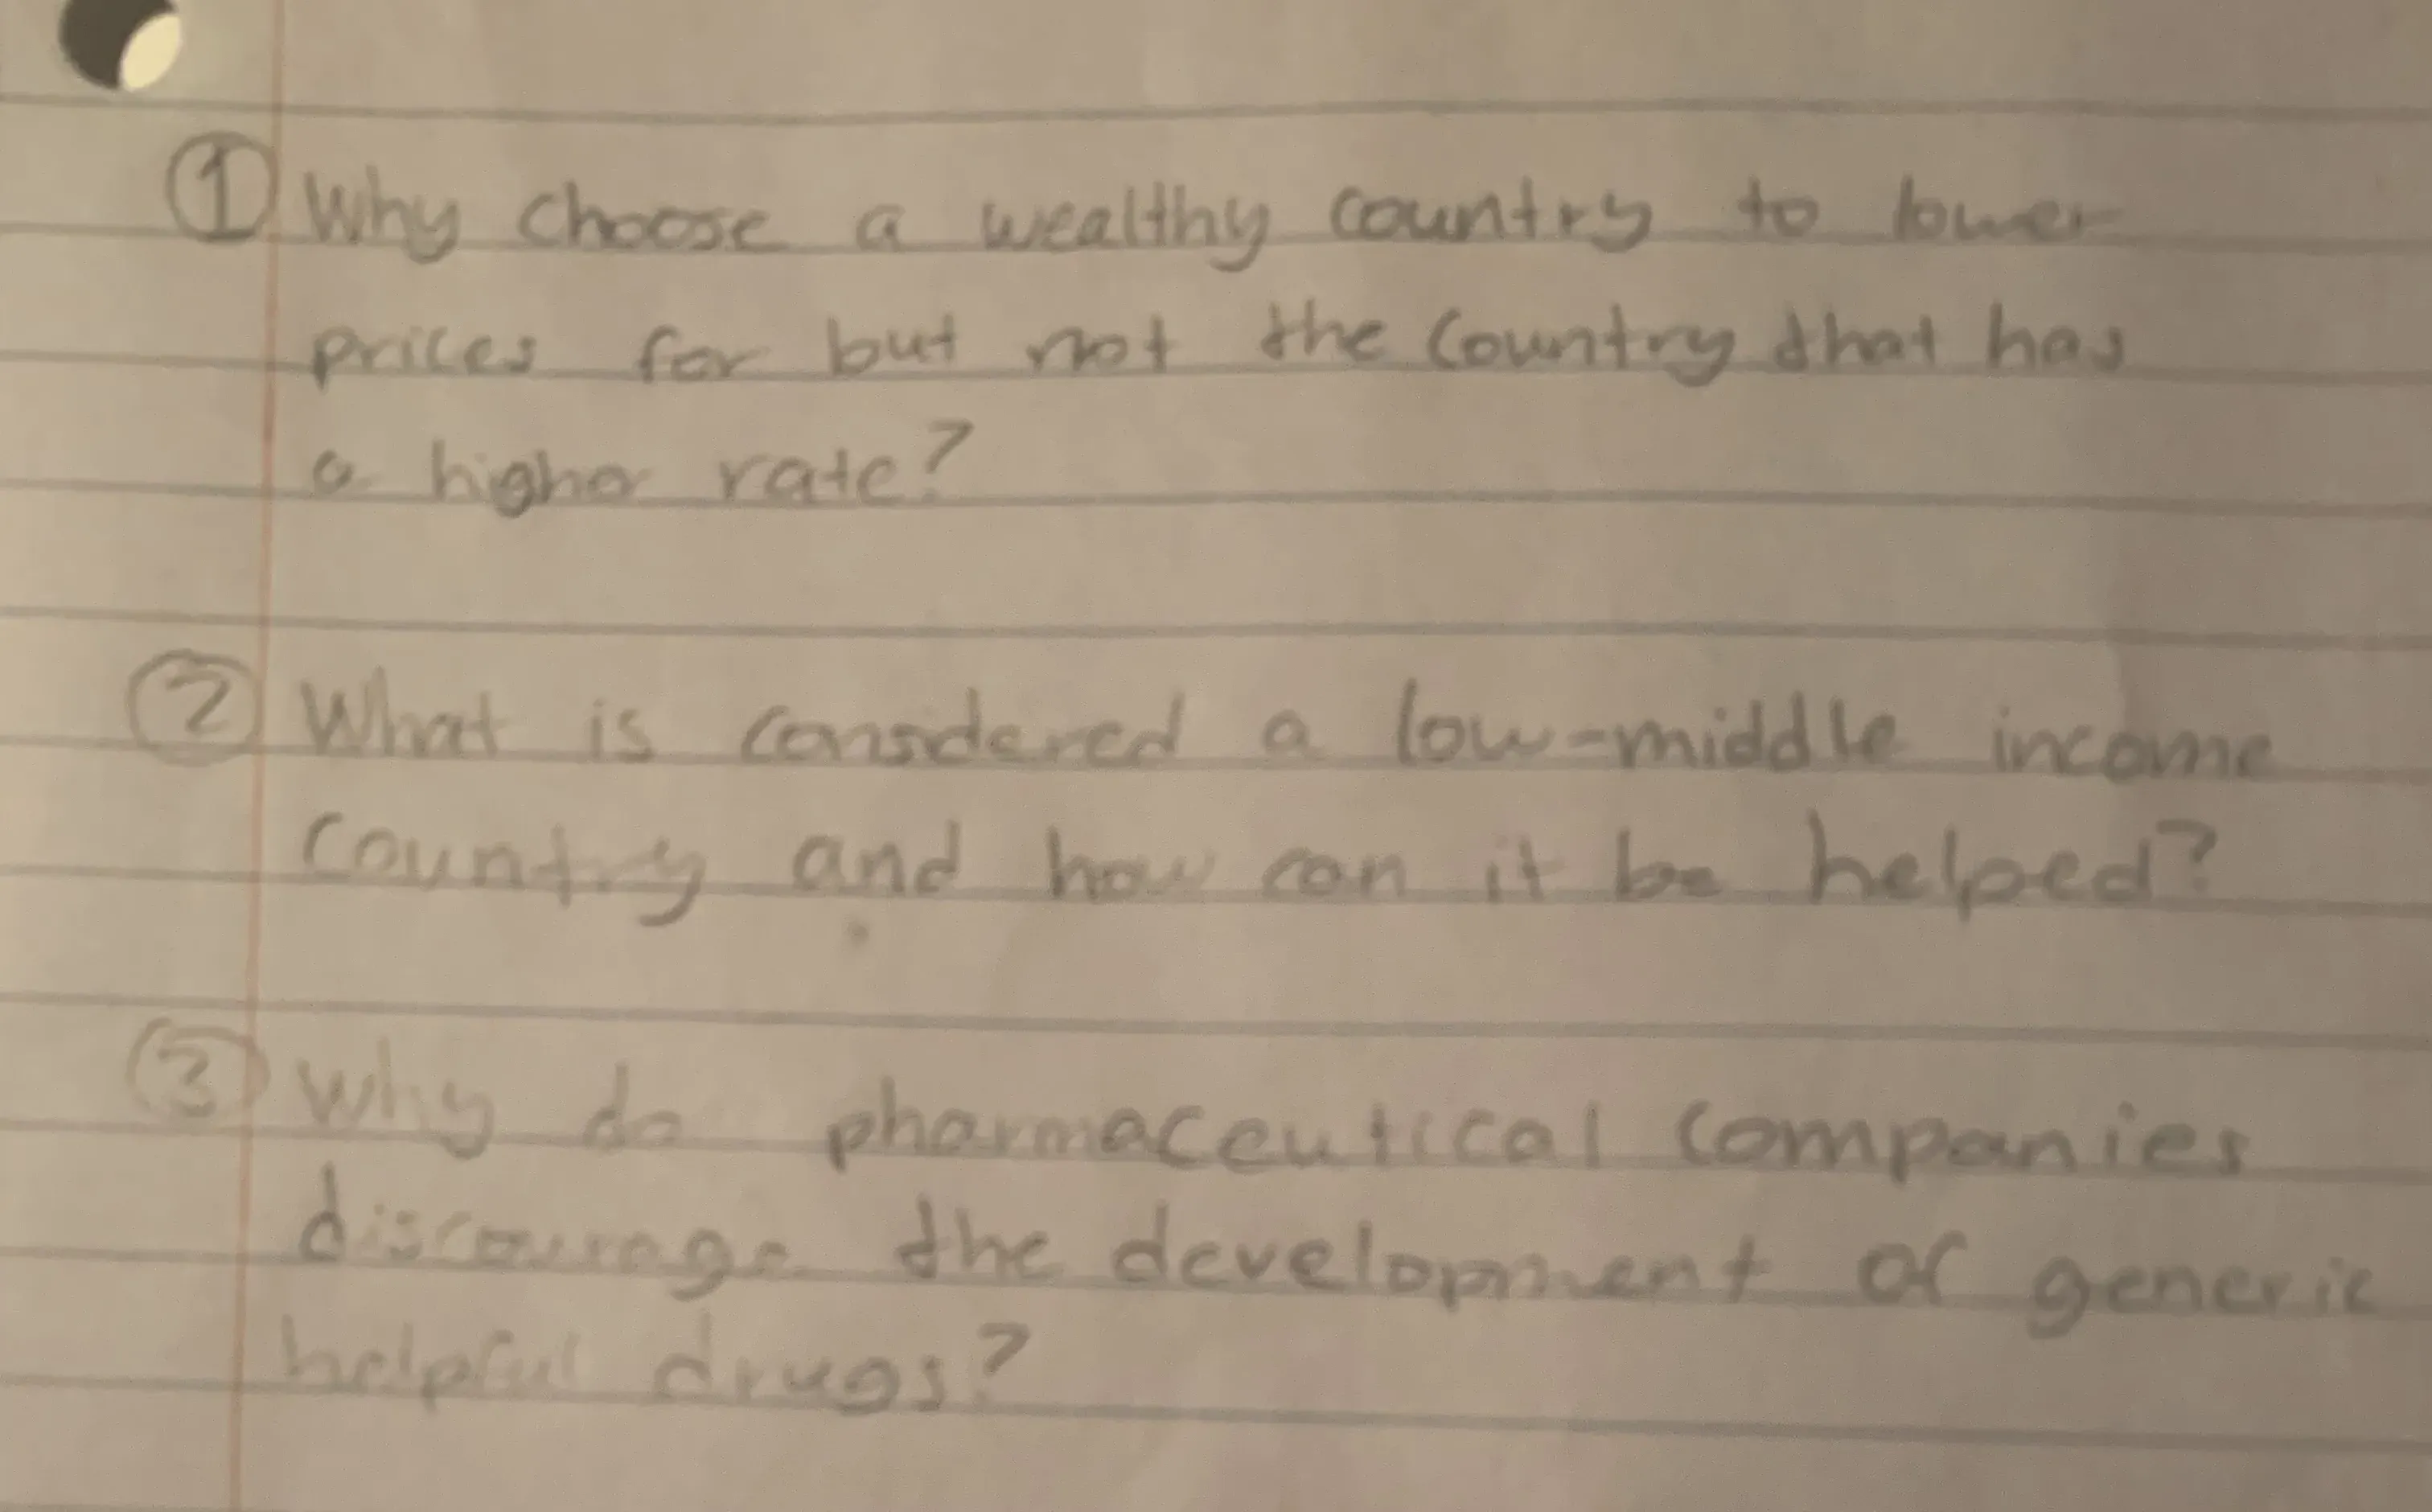 ① Why choose a wealthy country to lower
prices for but not the country that has
a higher rate?
② What is considered a low-middle income
country and how can it be helped?
③ Why do pharmaceutical companies
discourage the development of generic
helpful drugs?